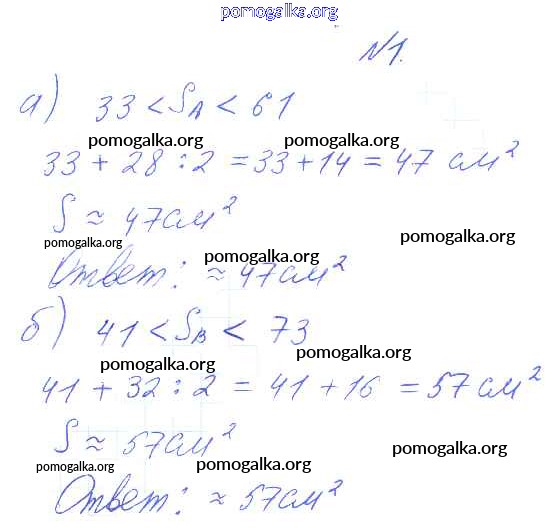 pomogalka.org
N1.
а) 33 < S_A < 61
pomogalka.org pomogalka.org
33 + 28 : 2 = 33 + 14 = 47 см²
S ≈ 47 см²
pomogalka.org pomogalka.org
pomogalka.org
Ответ: ≈ 47 см²
б) 41 < S_B < 73
pomogalka.org
pomogalka.org
41 + 32 : 2 = 41 + 16 = 57 см²
S ≈ 57 см²
pomogalka.org pomogalka.org pomogalka.org
Ответ: ≈ 57 см²